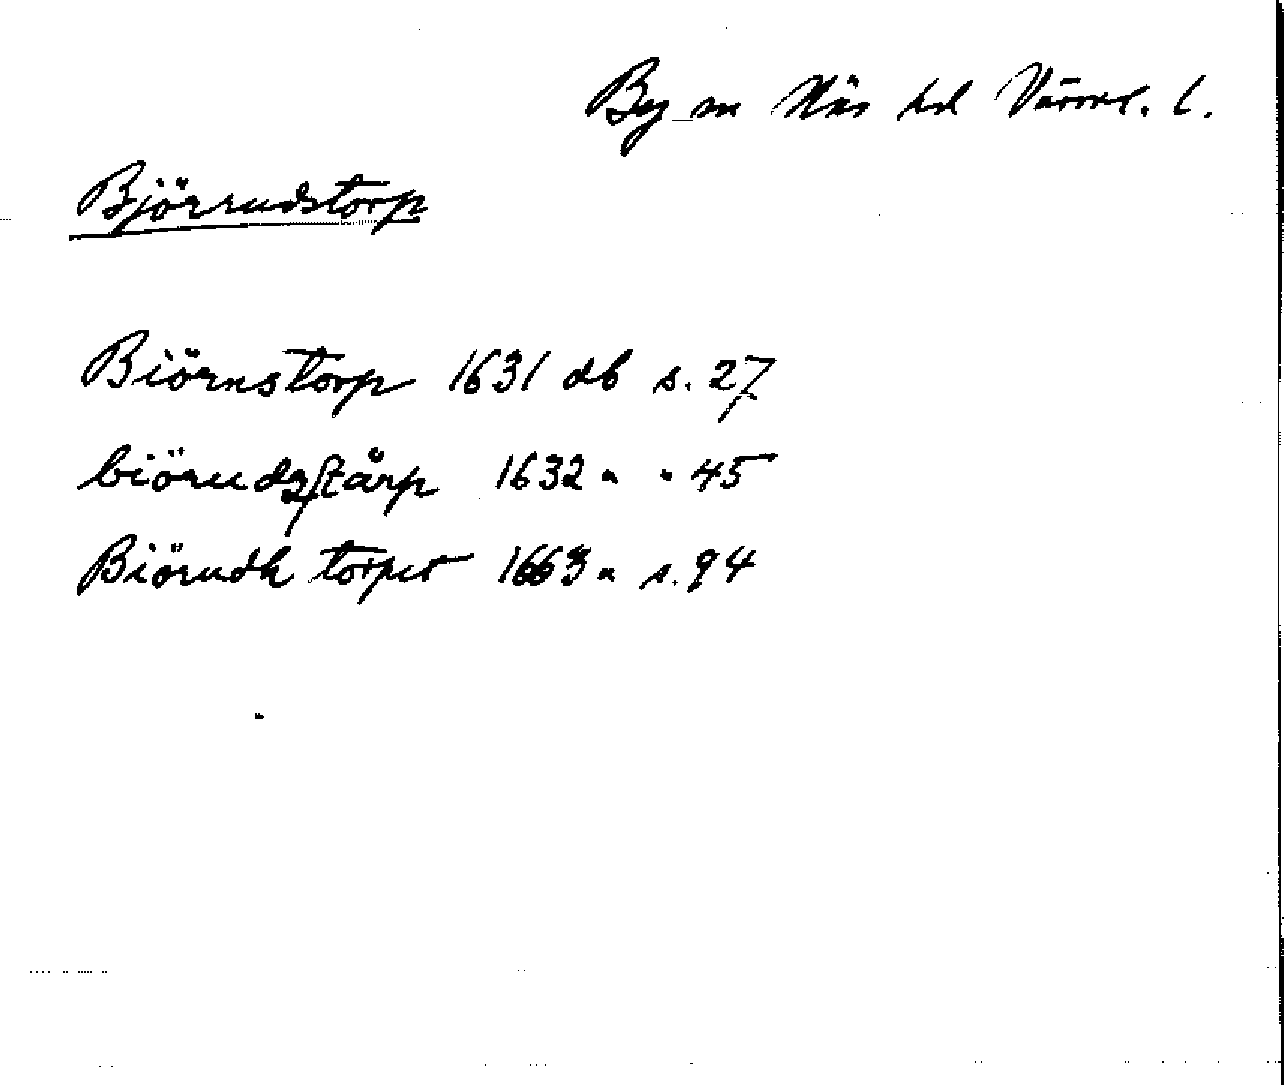 By sn Näs hd Värml. l.
Björrudstorp
Biörnstorp 1631 db s. 27
biörudzstårp 1632 " " 45
Biörudh torpet 1663 " s. 94